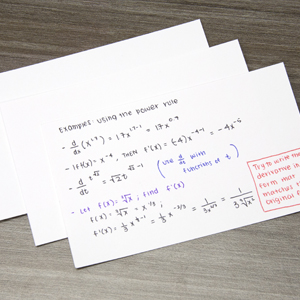 Examples using the power rule
- d/dx (x^1.7) = 1.7x^1.7-1 = 1.7x^0.7
- If f(x) = x^-4, THEN f'(x) = (-4)x^-4-1 = -4x^-5
- d/dt t^√2 = √2 t^√2-1
(use d/dt with functions of t)
- Let f(x) = ∛x, find f'(x)
f(x) = ∛x = x^1/3
f'(x) = 1/3 x^1/3-1 = 1/3 x^-2/3 = 1/3x^2/3 = 1/3∛x²
Try to write the
derivative in
form that
matches the
original f